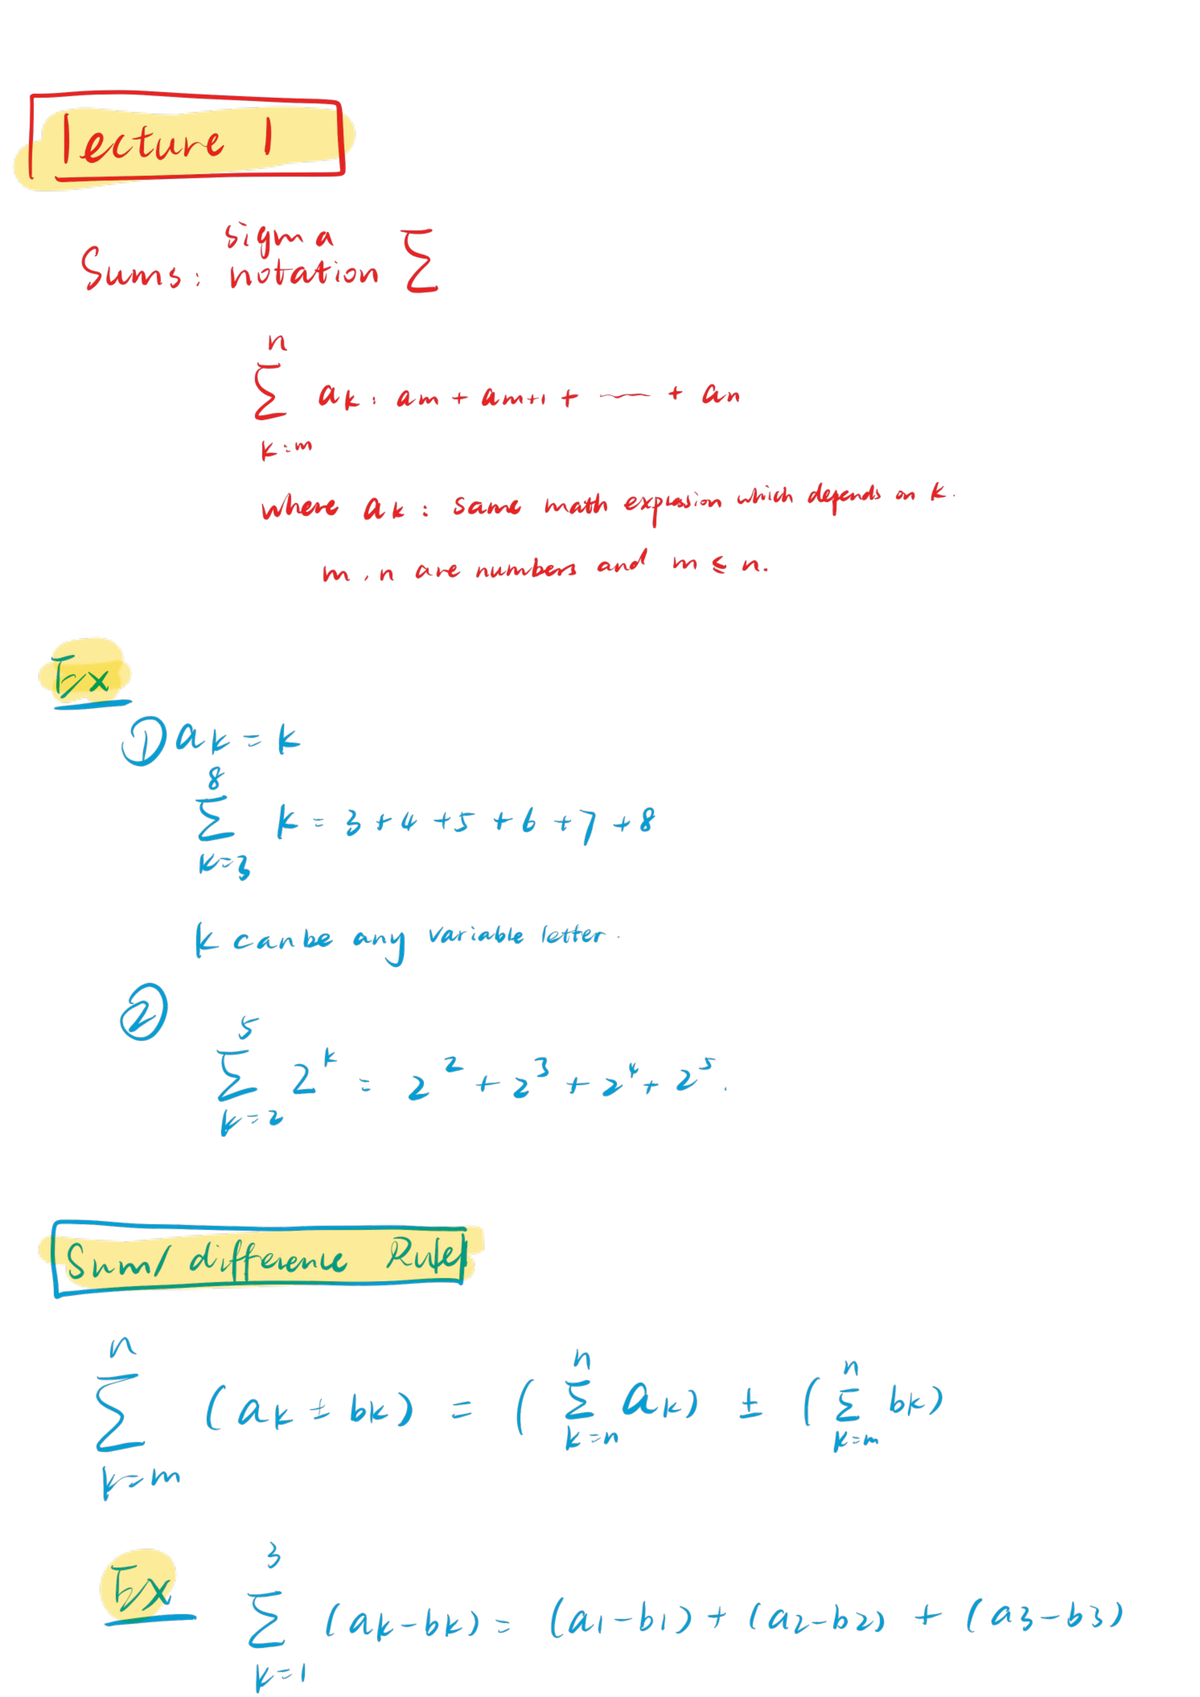 lecture 1
Sums: sigma notation Σ
n
Σ ak : am + am+1 + ⋯ + an
k=m
where ak : same math expression which depends on k.
m, n are numbers and m ≤ n.
Ex
① ak = k
8
Σ k = 3 + 4 + 5 + 6 + 7 + 8
k=3
k can be any variable letter.
②
5
Σ 2^k = 2^2 + 2^3 + 2^4 + 2^5.
k=2
Sum/ difference Rule
n
Σ (ak ± bk) = ( n Σ k=n ak) ± ( n Σ k=m bk)
k=m
Ex
3
Σ (ak - bk) = (a1 - b1) + (a2 - b2) + (a3 - b3)
k=1